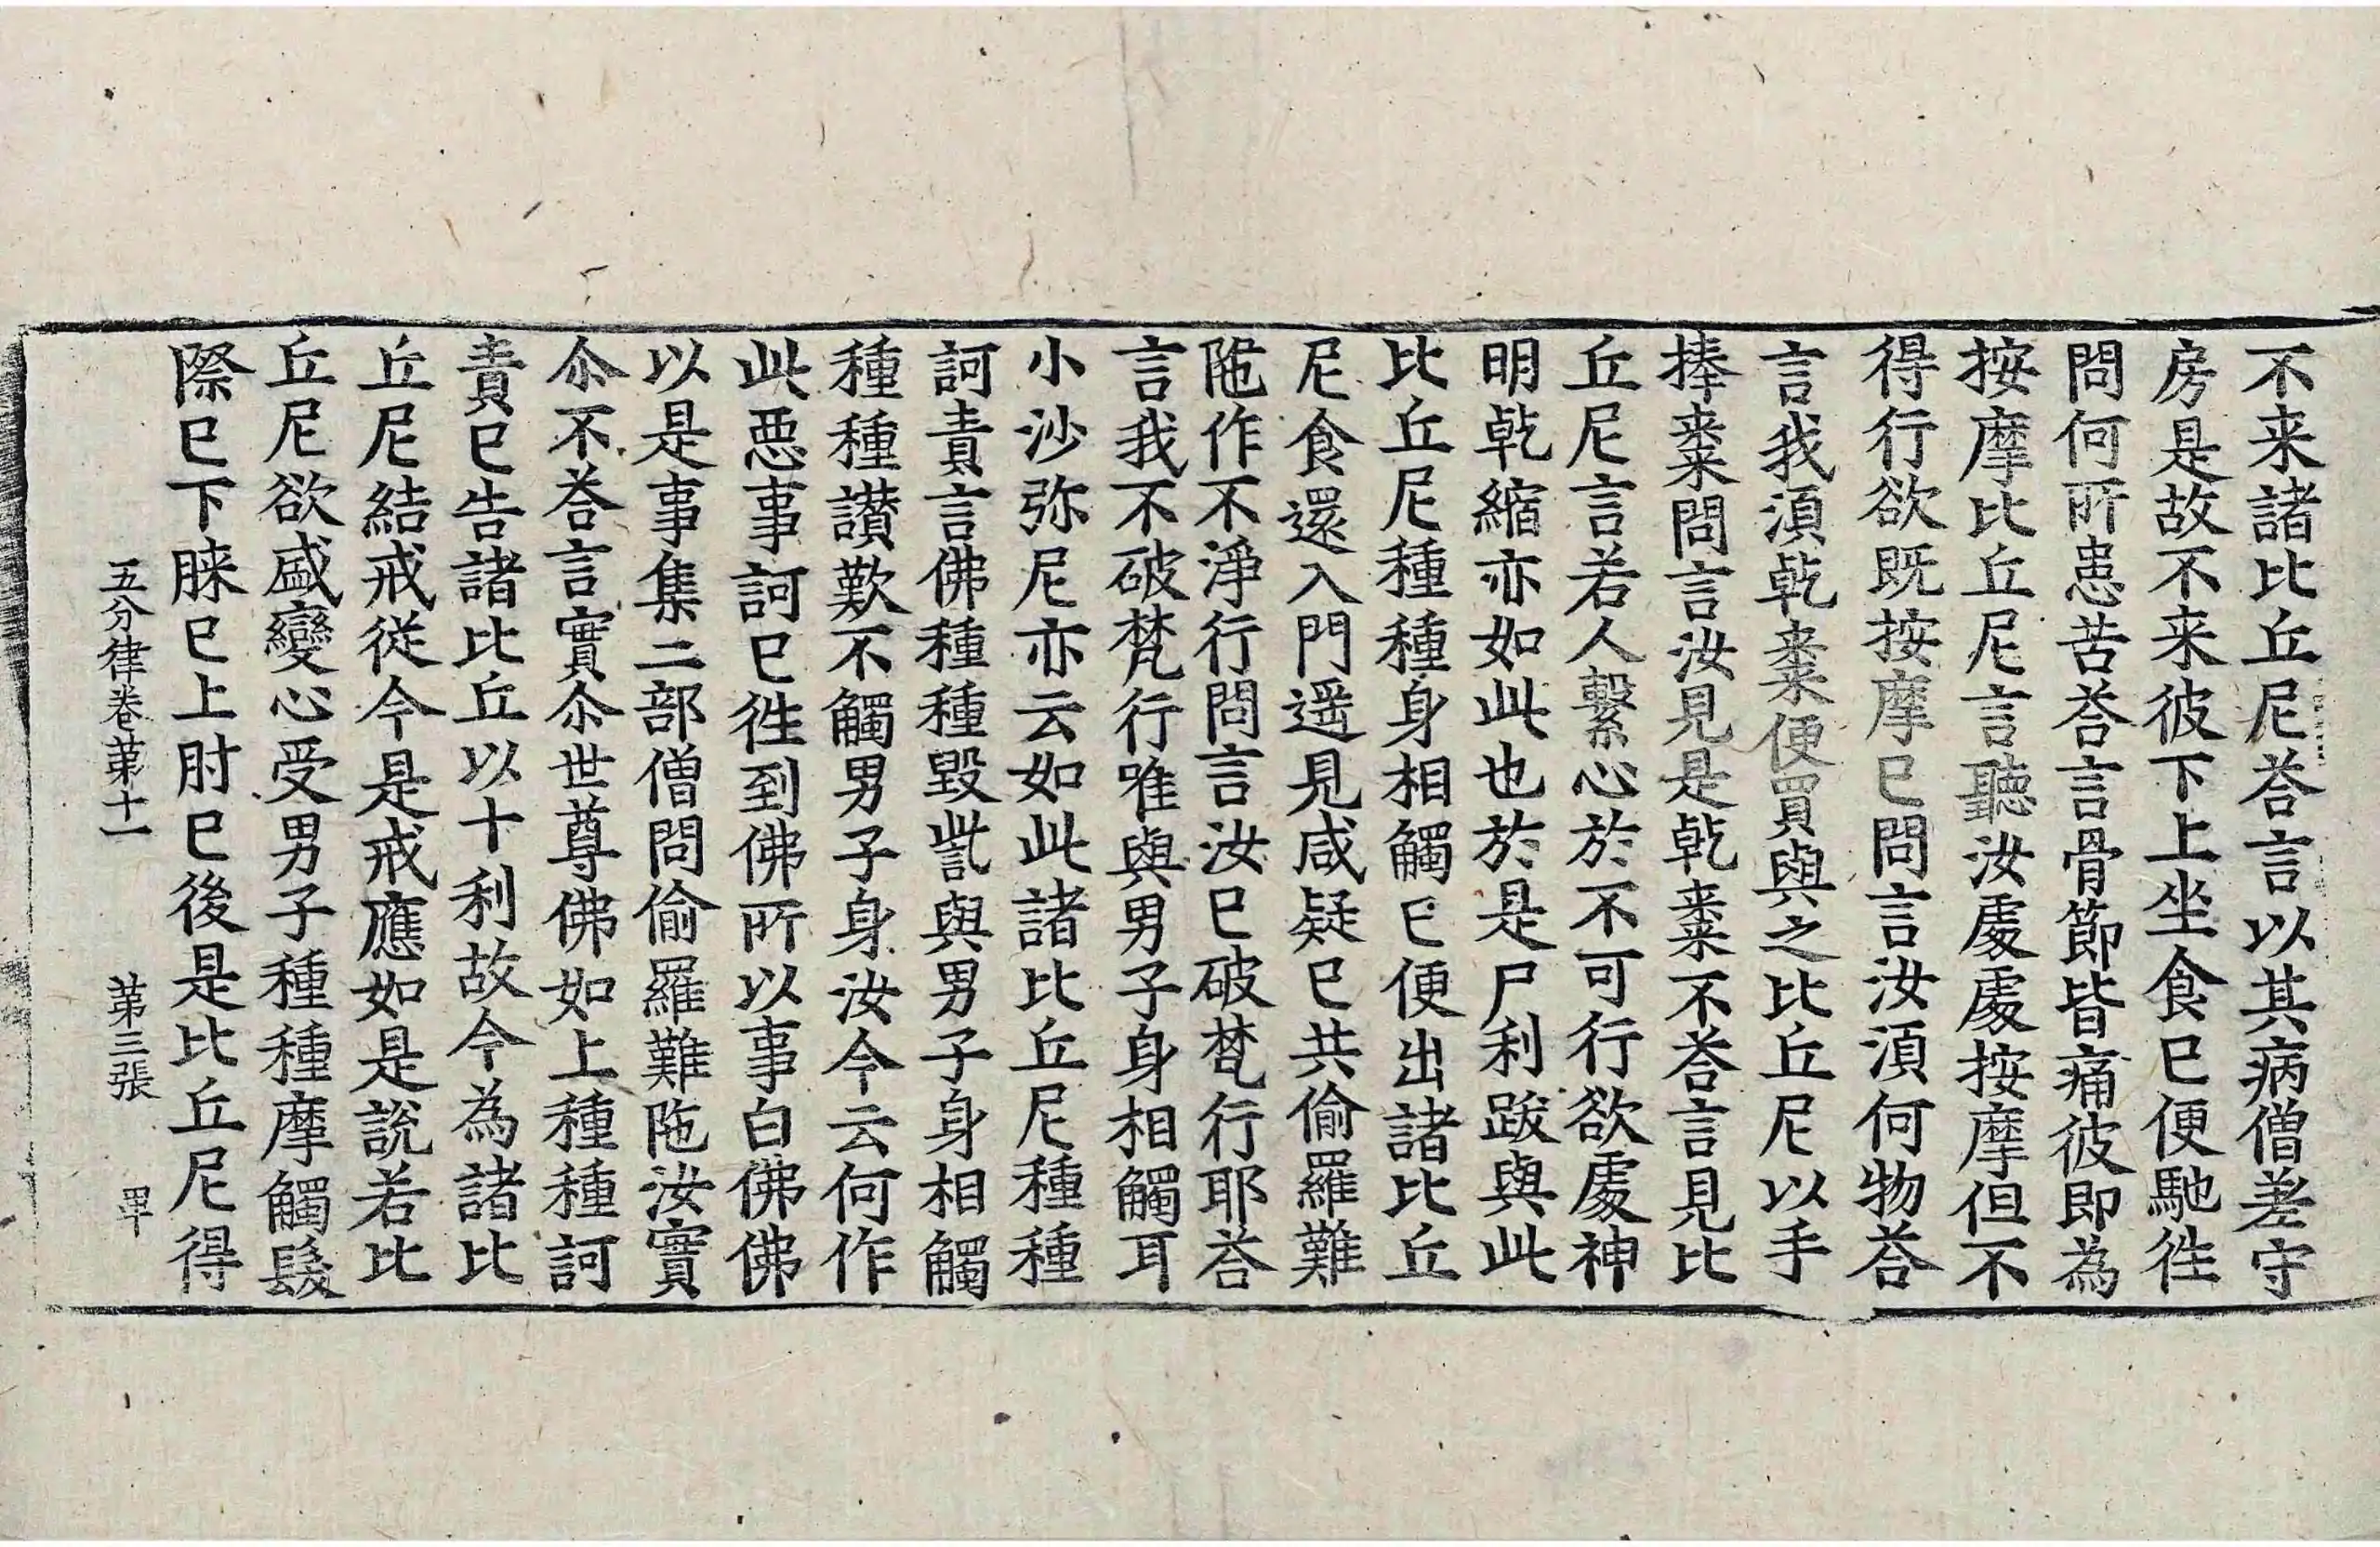 不来諸比丘尼荅言以其病僧差守
房是故不来彼下上坐食已便馳徃
問何所患苦荅言骨節皆痛彼即為
按摩比丘尼言聽汝處處按摩但不
得行欲既按摩已問言汝湏何物荅
言我湏乾棗便買與之比丘尼以手
捧棗問言汝見是乾棗不荅言見比
丘尼言若人繫心於不可行欲處神
明乾縮亦如此也於是尸利跋與此
比丘尼種種身相觸已便出諸比丘
尼食還入門遥見咸疑已共偷羅難
陁作不淨行問言汝已破梵行耶荅
言我不破梵行唯與男子身相觸耳
小沙弥尼亦云如此諸比丘尼種種
訶責言佛種種毀訾與男子身相觸
種種讃歎不觸男子身汝今云何作
此惡事訶已徃到佛所以事白佛佛
以是事集二部僧問偷羅難陁汝實
尒不荅言實尒世尊佛如上種種訶
責已告諸比丘以十利故今為諸比
丘尼結戒從今是戒應如是說若比
丘尼欲盛變心受男子種種摩觸髮
際已下𦡀已上肘已後是比丘尼得
五分律卷苐十一 苐三張 罩